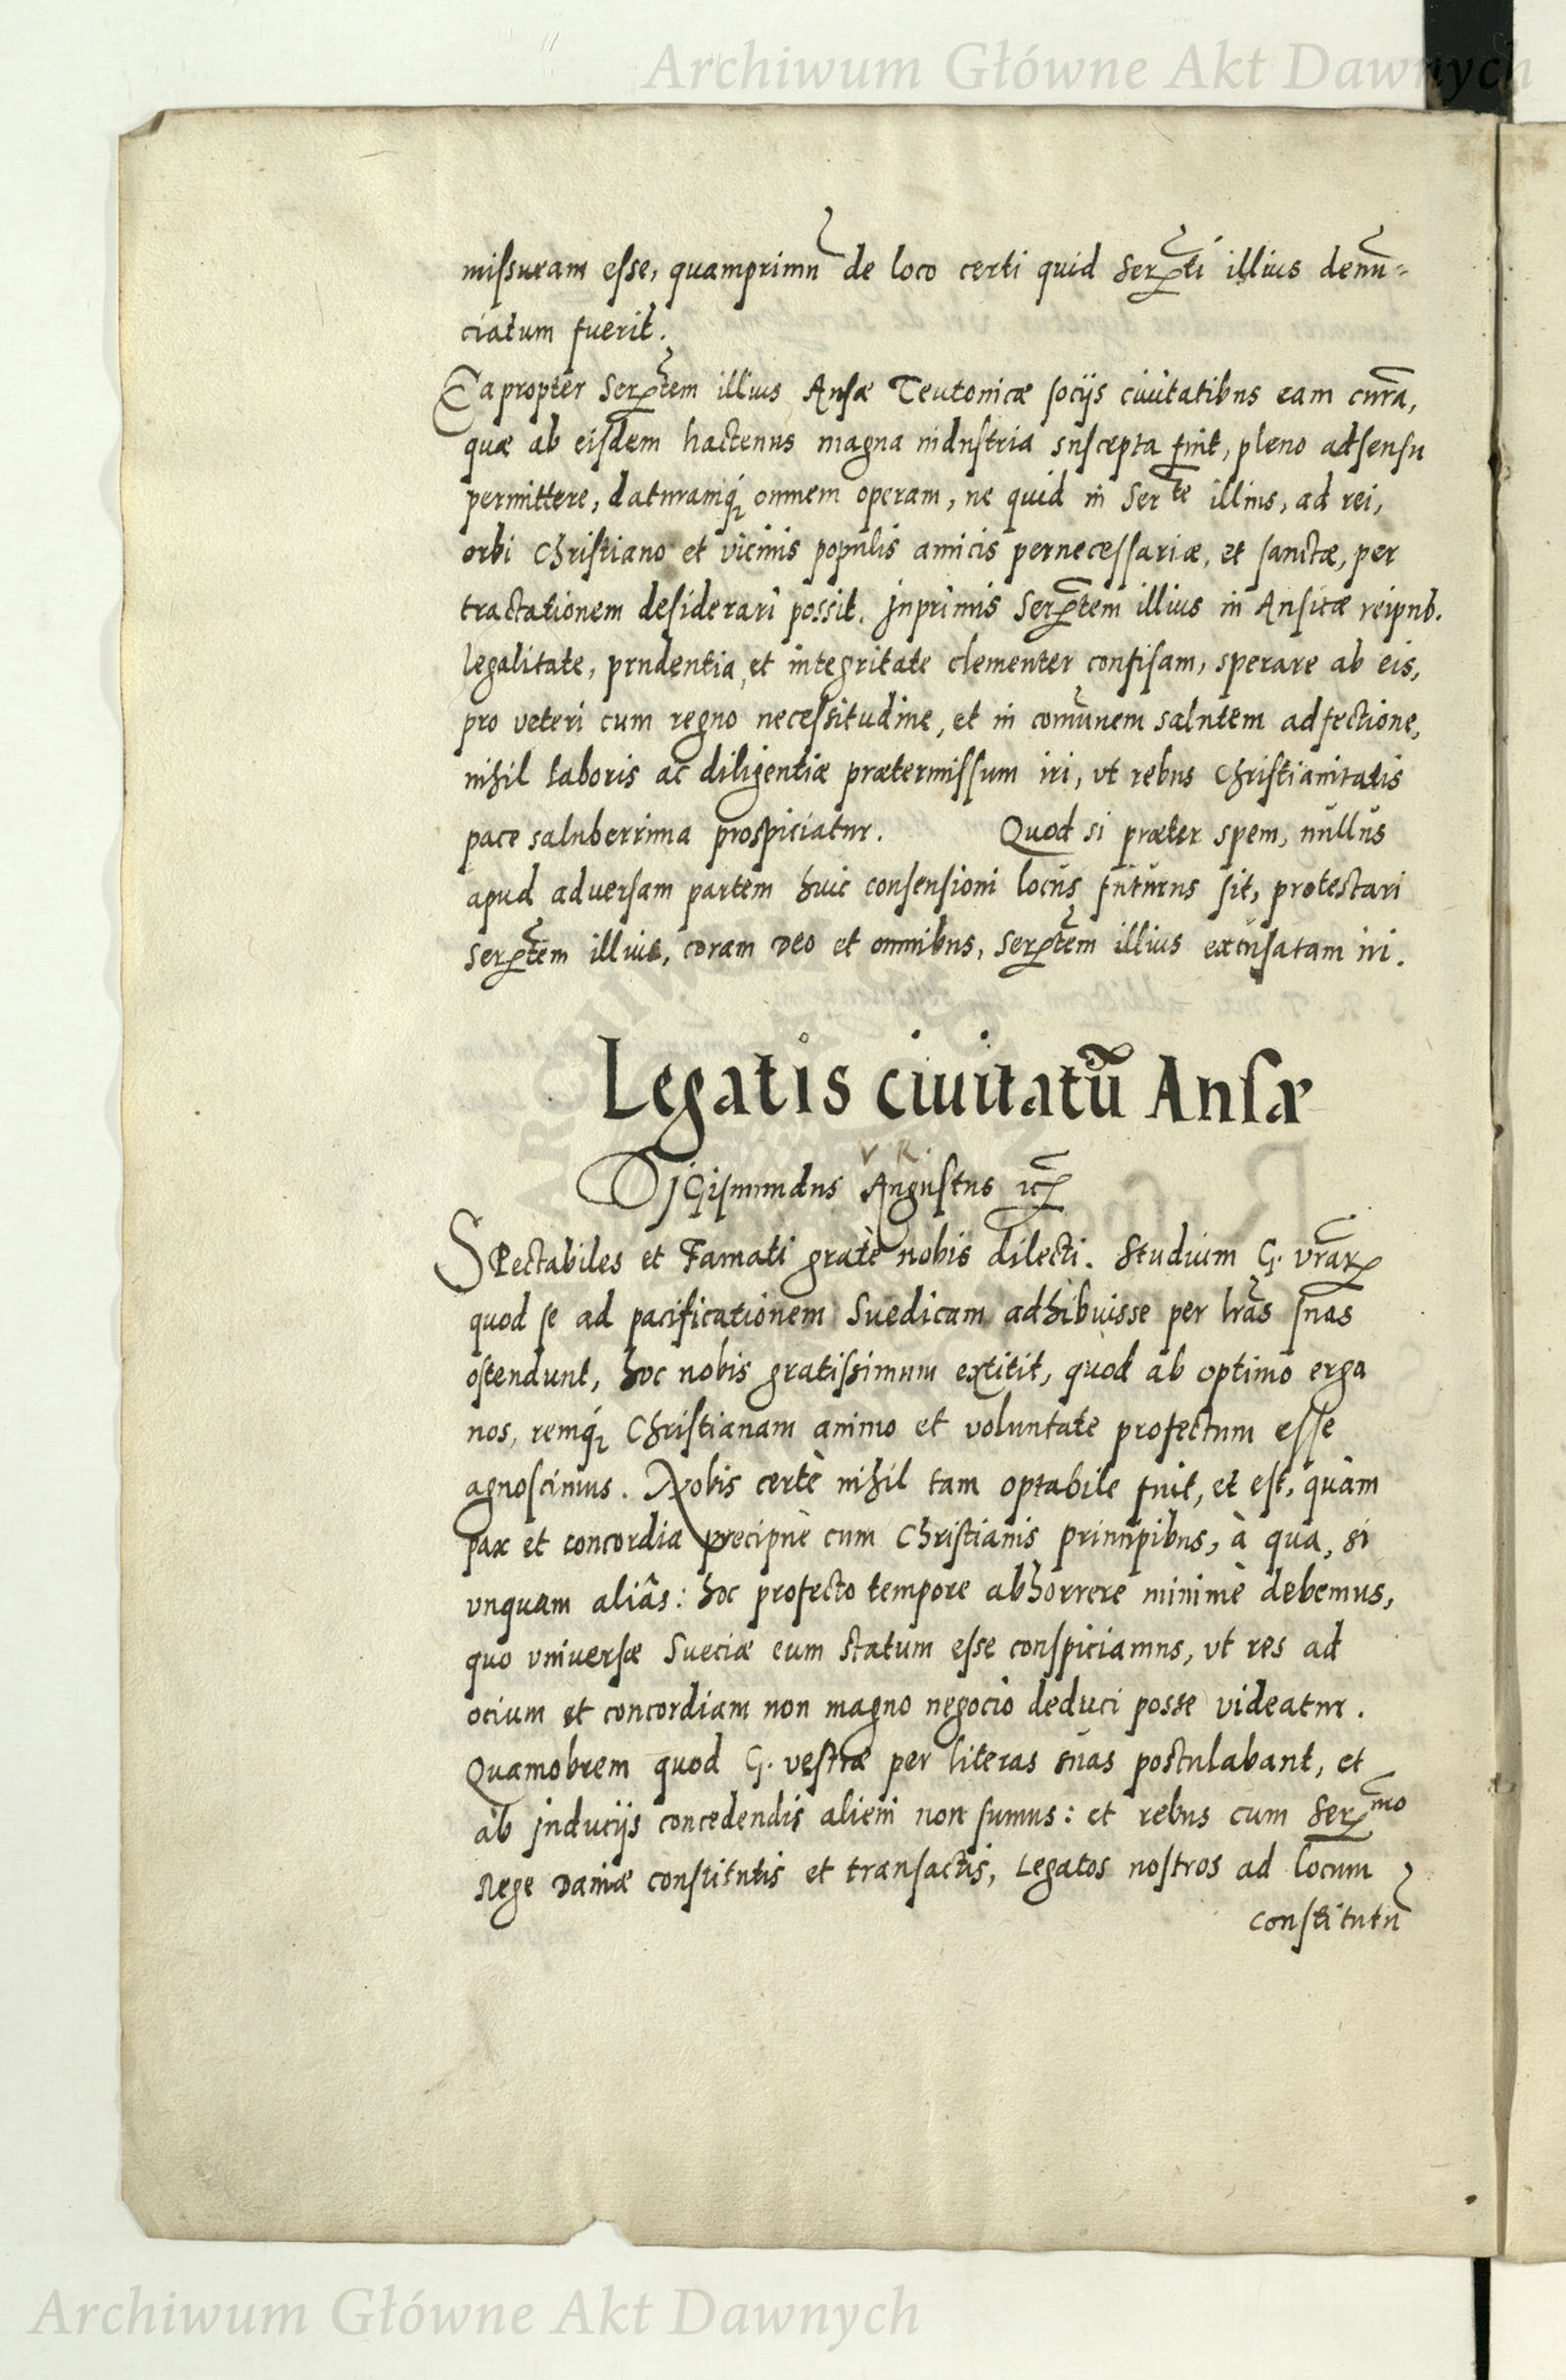 Archiwum Główne Akt Dawnych
missuram esse, quamprimū de loco certi quid Serᵗⁱ illius denū=
ciatum fuerit.
Ea propter Serᵗᵉᵐ illius Ansæ Teutonicæ socijs ciuitatibus eam curā,
quæ ab eisdem hactenus magna industria suscepta fuit, pleno adsensu
permittere, daturamq́ꝫ omnem operam, ne quid in Serᵗᵉ illius, ad rei,
orbi Christiano et vicinis populis amicis pernecessariæ, et sanctæ, per
tractationem desiderari possit. Inprimis Serᵗᵉᵐ illius in Ansicæ reipub.
legalitate, prudentia, et integritate clementer confisam, sperare ab eis,
pro veteri cum regno necessitudine, et in comūnem salutem adfectione,
nihil laboris ac diligentiæ prætermissum iri, vt rebus Christianitatis
pace saluberrima prospiciatur. Quod si præter spem, nullus
apud adversam partem huic consensioni locus futurus sit, protestari
Serᵗᵉᵐ illius, coram Deo et omnibus, Serᵗᵉᵐ illius excusatam iri.
Legatis ciuitatū Ansæ
V R
Sigismundus Augustus ꝛcꝫ
SPectabiles et Famati gratè nobis dilecti. Studium G. vrāꝝ
quod se ad pacificationem Suedicam adhibuisse per lrās suas
ostendunt, hoc nobis gratissimum extitit, quòd ab optimo erga
nos, remq́ꝫ Christianam animo et voluntate profectum esse
agnoscimus. Nobis certè nihil tam optabile fuit, et est, quàm
pax et concordia precipuè cum Christianis principibus, à qua, si
vnquam aliâs: hoc profecto tempore abhorrere minimè debemus,
quo vniuersæ Sueciæ eum statum esse conspiciamus, vt res ad
ocium et concordiam non magno negocio deduci posse videatur.
Quamobrem quod G. vestræ per literas suas postulabant, et
ab inducijs concedendis alieni non sumus: et rebus cum Serᵐᵒ
Rege Daniæ constitutis et transactis, Legatos nostros ad locum
constitutū
Archiwum Główne Akt Dawnych